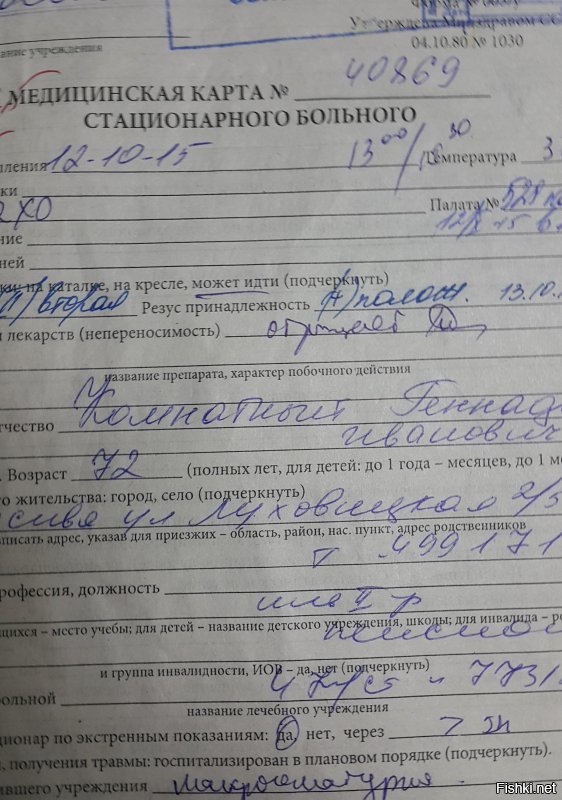 Утверждена Минздравом СС
ание учреждения
04.10.80 № 1030
МЕДИЦИНСКАЯ КАРТА № 40869
СТАЦИОНАРНОГО БОЛЬНОГО
пления 12-10-15 13 00 / 30 Температура 3
ки
ХО Палата № 528
ние
ней
на каталке, на кресле, может идти (подчеркнуть)
вторая Резус принадлежность полож. 13.10.
лекарств (непереносимость) отрицает
название препарата, характер побочного действия
чество Комнатный Геннад
Иванович
Возраст 72 (полных лет, для детей: до 1 года – месяцев, до 1 ме
о жительства: город, село (подчеркнуть)
ул Луховицкая 2/5
писать адрес, указав для приезжих – область, район, нас. пункт, адрес родственников
т. 499 171
рофессия, должность
инв II гр
щихся – место учебы; для детей – название детского учреждения, школы; для инвалида – ро
и группа инвалидности, ИОВ – да, нет (подчеркнуть)
больной
название лечебного учреждения
ционар по экстренным показаниям: да, нет, через
, получения травмы: госпитализирован в плановом порядке (подчеркнуть).
вшего учреждения макрогематурия
Fishki.net